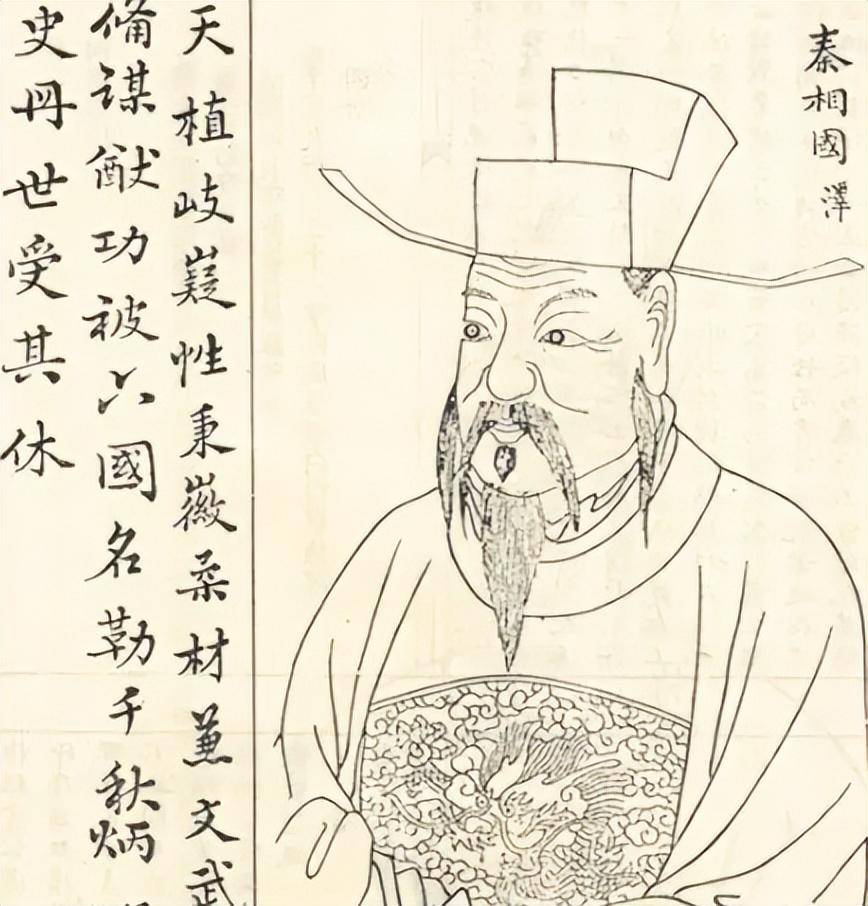 秦相國 澤
天植岐嶷性秉徽柔材兼文武
偹謀猷功被六國名勒千秋炳
史册世受其休